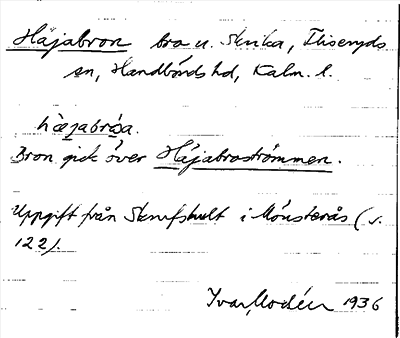 Häjabron bro u. Skrika, Fliseryds
sn, Handbörds hd, Kalm. l.
hæjabróa.
Bron gick över Häjabroströmmen.
Uppgift från Skrufshult i Mönsterås (s.
122).
Ivar Modéer 1936